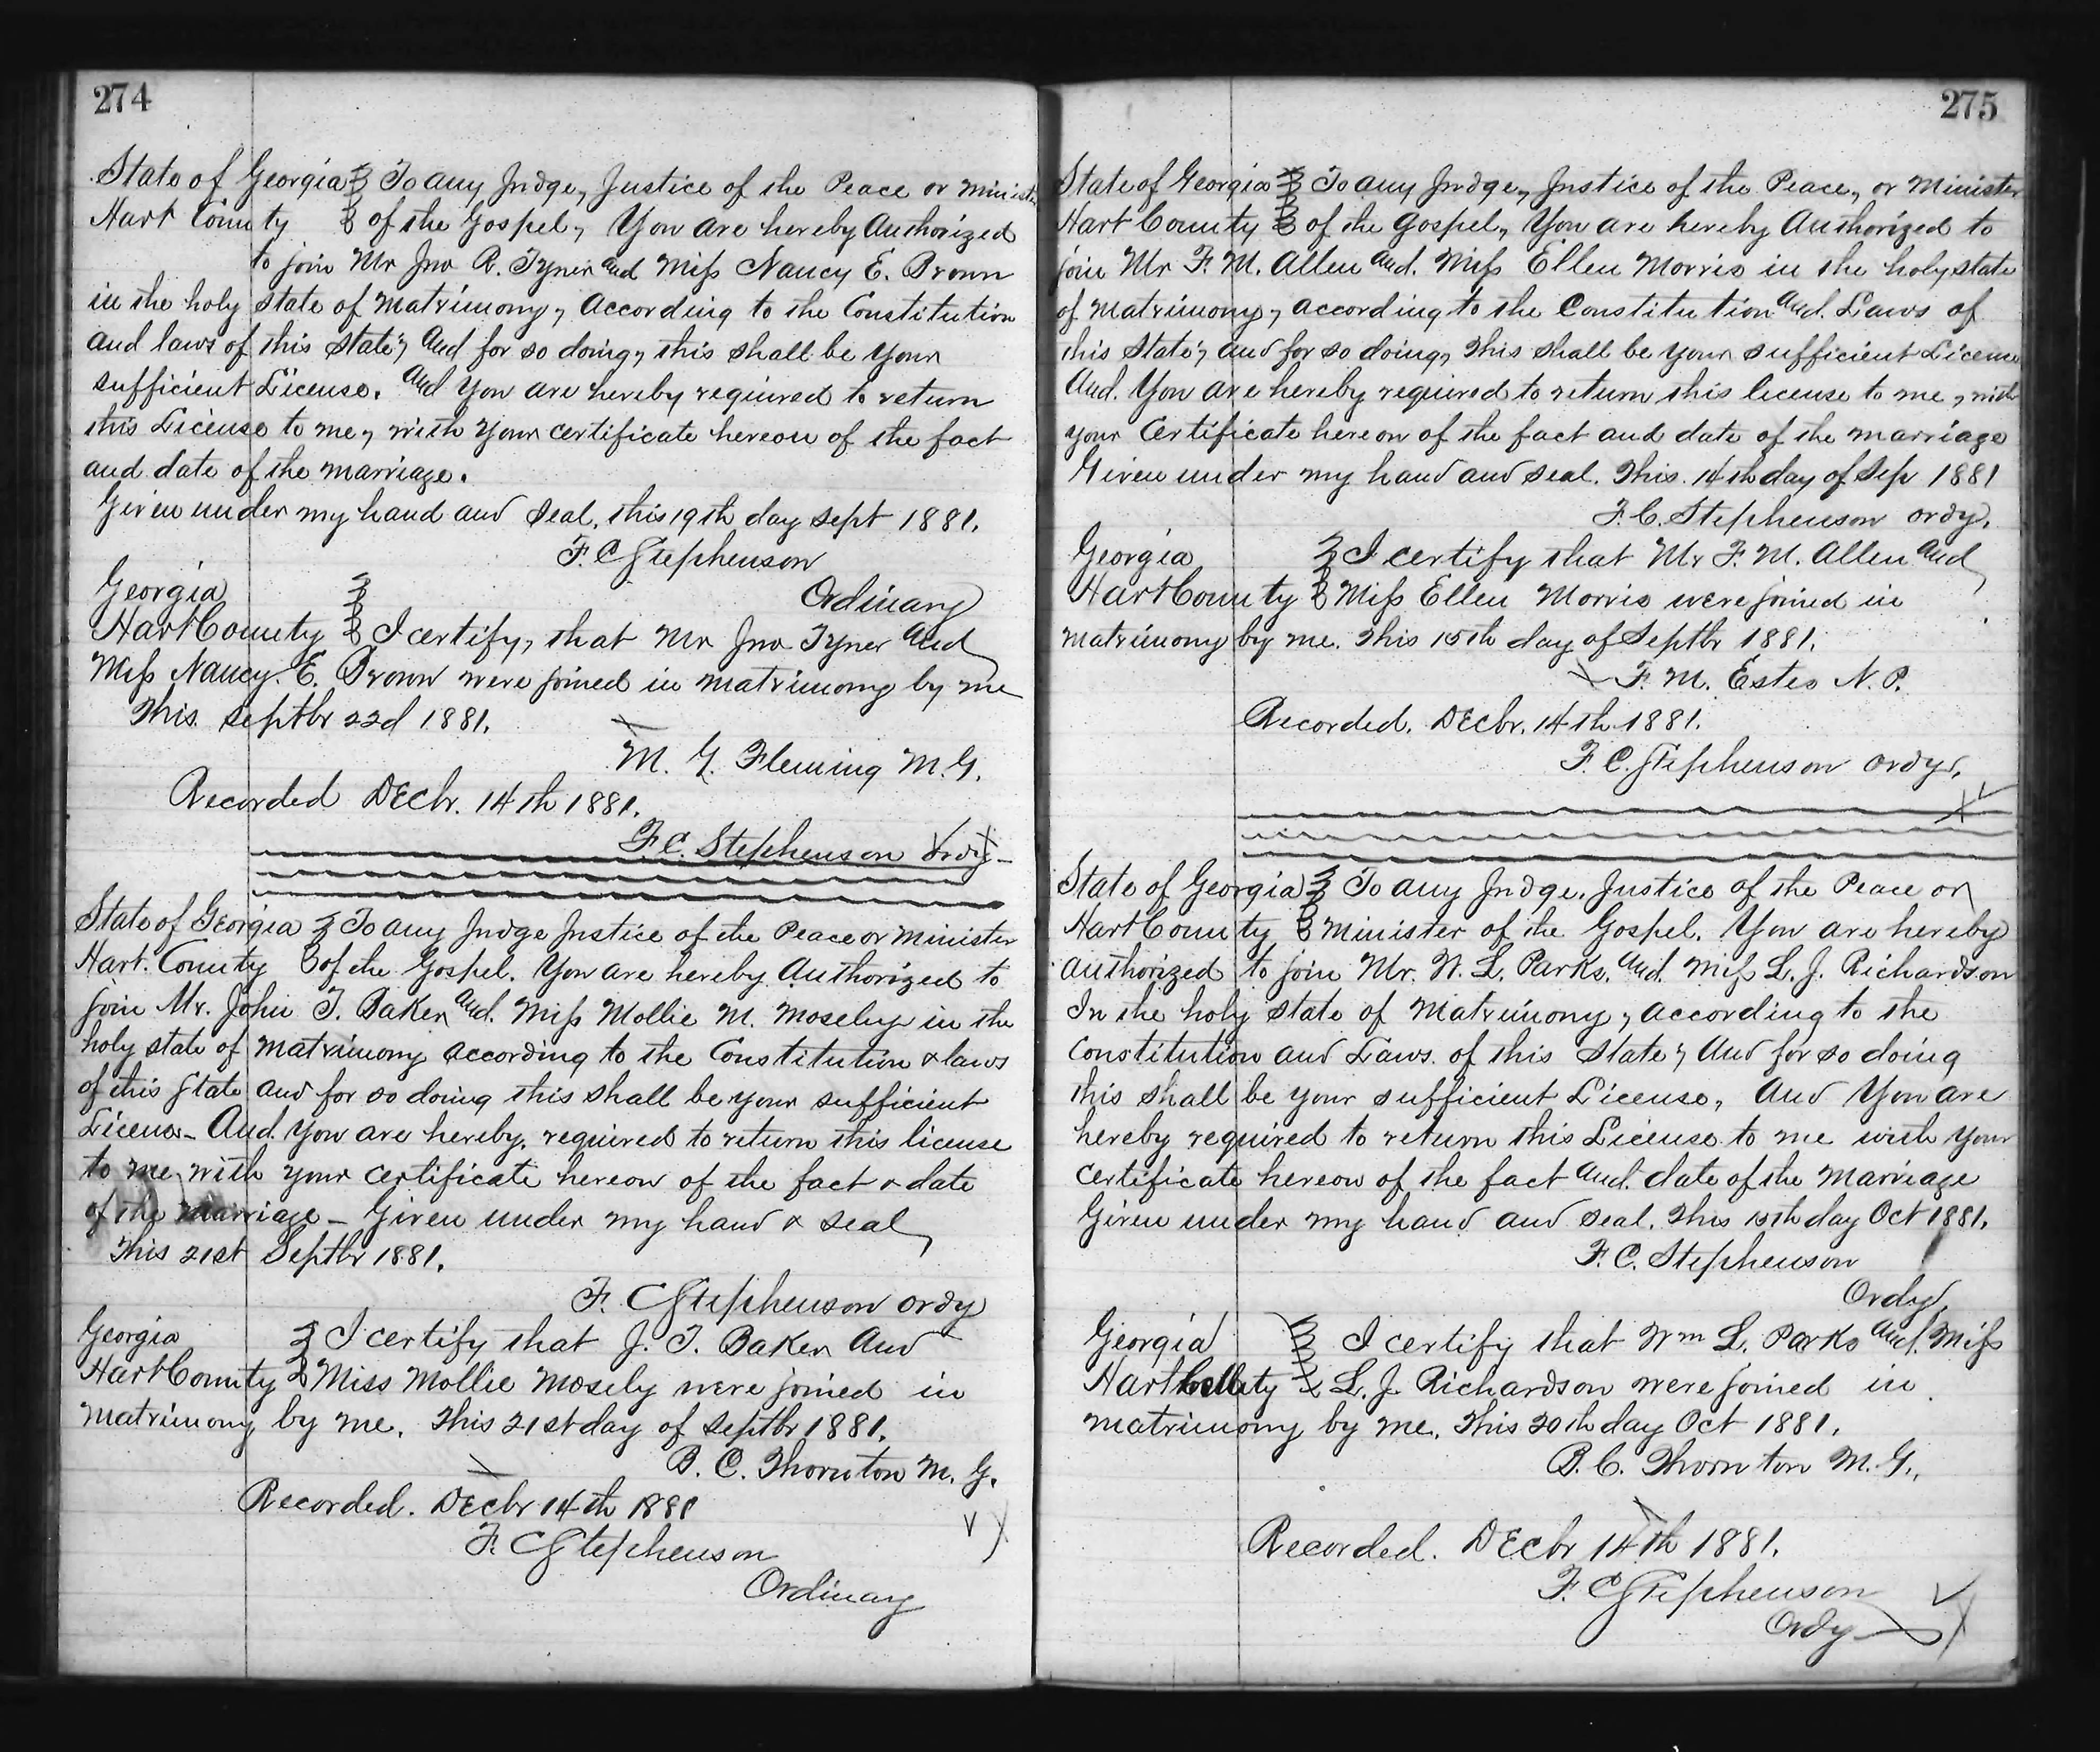 274
State of Georgia } To any Judge, Justice of the Peace or Minister
Hart County } of the Gospel, You are hereby Authorized
to join Mr Jno R. Tyner and Miss Nancy E. Brown
in the holy state of Matrimony, According to the Constitution
and laws of this State; and for so doing, this shall be your
sufficient License. And You are hereby required to return
this License to me, with your certificate hereon of the fact
and date of the marriage.
Given under my hand and Seal, this 19th day Sept 1881.
F. C Stephenson
Ordinary
Georgia }
Hart County } I certify, that Mr Jno Tyner and
Miss Nancy. E. Brown were joined in matrimony by me
This Septbr 22d 1881.
M. G. Fleming M.G.
Recorded Decbr. 14th 1881.
F. C. Stephenson Ordy
State of Georgia } To any Judge Justice of the Peace or Minister
Hart. County } of the Gospel. You are hereby Authorized to
join Mr. John T. Baker and. Miss Mollie M. Moseley in the
holy state of Matrimony according to the Constitution & laws
of this State and for so doing this shall be your sufficient
License - And You are hereby required to return this license
to me with your certificate hereon of the fact & date
of the marriage - Given under my hand & seal
This 21st Septbr 1881.
F. C Stephenson Ordy
Georgia } I certify that J. T. Baker and
Hart County } Miss Mollie Mosely were joined in
matrimony by me. This 21st day of Septbr 1881.
B. C. Thornton M. G.
Recorded. Decbr 14th 1881
F. C Stephenson
Ordinary
275
State of Georgia } To any Judge, Justice of the Peace, or Minister
Hart County } of the Gospel, You are hereby Authorized to
join Mr F. M. Allen and. Miss Ellen Morris in the holy state
of matrimony, according to the Constitution and. Laws of
this State; and for so doing, This shall be your sufficient License
And. You are hereby required to return this license to me, with
your Certificate hereon of the fact and date of the marriage
Given under my hand and seal. This. 14th day of Sep 1881
F. C. Stephenson Ordy.
Georgia } I certify that Mr F. M. Allen and
Hart County } Miss Ellen Morris were joined in
matrimony by me. This 15th day of Septbr 1881.
F. M. Estes N. P.
Recorded. Decbr. 14th 1881.
F. C. Stephenson Ordy.
State of Georgia } To any Judge. Justice of the Peace or
Hart County } Minister of the Gospel. You are hereby
authorized to join Mr. W. L. Parks. and. Miss L. J. Richardson
In the holy state of Matrimony, according to the
Constitution and Laws. of this State; And for so doing
this shall be your sufficient License, And You are
hereby required to return this License to me with your
certificate hereon of the fact and. date of the Marriage
Given under my hand and seal. This 15th day Oct 1881.
F. C. Stephenson
Ordy
Georgia } I certify that Wm L. Parks and Miss
Hart County } L. J. Richardson were joined in
matrimony by me. This 20th day Oct 1881.
B. C. Thornton M. G.
Recorded. Decbr 14th 1881.
F. C Stephenson
Ordy